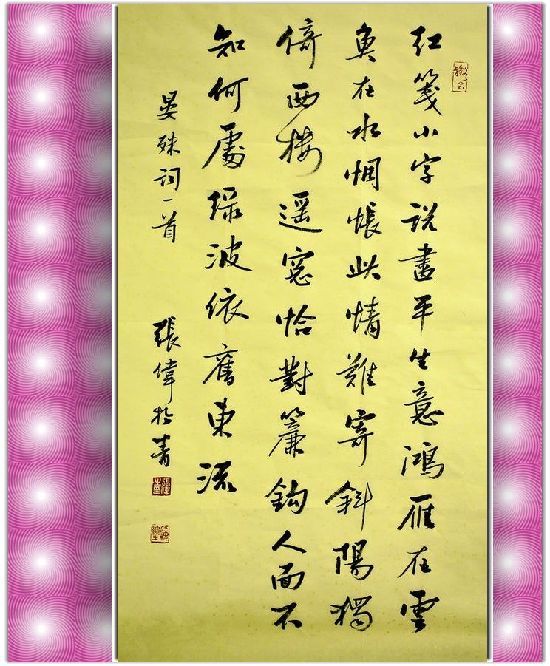 红笺小字说盡平生意鴻雁在雲
魚在水惆悵此情難寄斜陽獨
倚西楼遥窓恰對簾鈎人面不
知何處緑波依舊東流
晏殊词一首
張偉於青